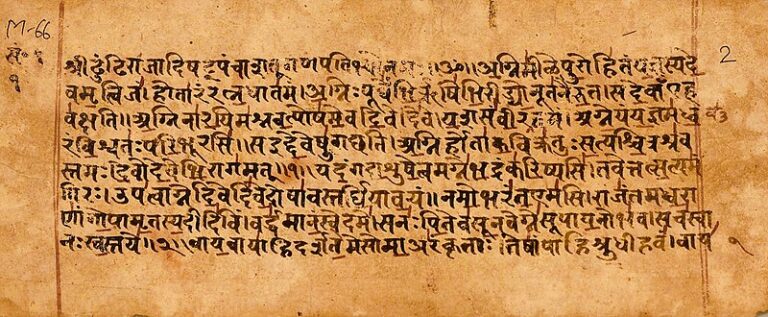 M-66
१
2
श्रीढुंढिराजादिष गणपति ॥ॐ॥अग्निमीळेपुरोहितंयज्ञस्यदे
वमृत्विजं।होतारंरत्नधातमं।अग्निःपूर्वेभिर्ऋषिभिरीड्योनूतनैरुत।सदेवाँएह
वक्षति॥अग्निनारयिमश्नवत्पोषमेवदिवेदिवे।यशसंवीरवत्तमं।अग्नेयंयज्ञमध्व
रंविश्वतःपरिभूरसि॥सइद्देवेषुगच्छति।अग्निर्होताकविक्रतुःसत्यश्चित्रश्रव
स्तमः।देवोदेवेभिरागमत्॥१॥यदंगदाशुषेत्वमग्नेभद्रंकरिष्यसि।तवेत्तत्सत्यमं
गिरः।उपत्वाग्नेदिवेदिवेदोषावस्तर्धियावयं॥नमोभरंतएमसि।राजंतमध्वरा
णांगोपामृतस्यदीदिविं।वर्द्धमानंस्वेदमे।सनःपितेवसूनवेग्नेसूपायनोभव।सचस्वा
नःस्वस्तये॥२॥वायवायाहिदर्शतेमेसोमाअरंकृताः।तेषांपाहिश्रुधीहवं।वाय
१